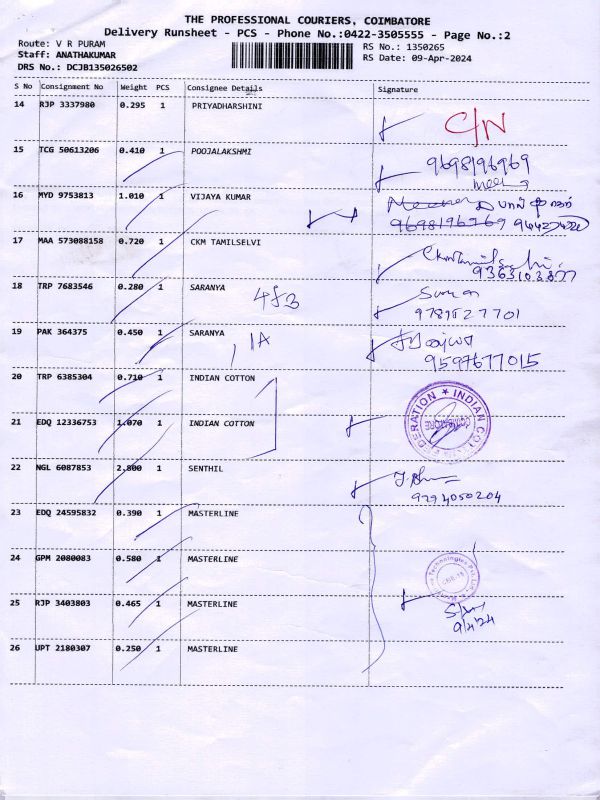 THE PROFESSIONAL COURIERS, COIMBATORE
Delivery Runsheet - PCS - Phone No.:0422-3505555 - Page No.:2
Route: V R PURAM
Staff: ANATHAKUMAR
DRS No.: DCJB135026502
RS No.: 1350265
RS Date: 09-Apr-2024
S No Consignment No Weight PCS Consignee Details Signature
14 RJP 3337980 0.295 1 PRIYADHARSHINI C/N
15 TCG 50613206 0.410 1 POOJALAKSHMI 9698196969
16 MYD 9753813 1.010 1 VIJAYA KUMAR
9698196969
17 MAA 573088158 0.720 1 CKM TAMILSELVI
9363103877
18 TRP 7683546 0.280 1 SARANYA
19 PAK 364375 0.450 1 SARANYA 1A
9597677015
20 TRP 6385304 0.710 1 INDIAN COTTON
21 EDQ 12336753 1.070 1 INDIAN COTTON
22 NGL 6087853 2.800 1 SENTHIL
9294050204
23 EDQ 24595832 0.390 1 MASTERLINE
24 GPM 2080083 0.580 1 MASTERLINE
25 RJP 3403803 0.465 1 MASTERLINE
9/4/24
26 UPT 2180307 0.250 1 MASTERLINE